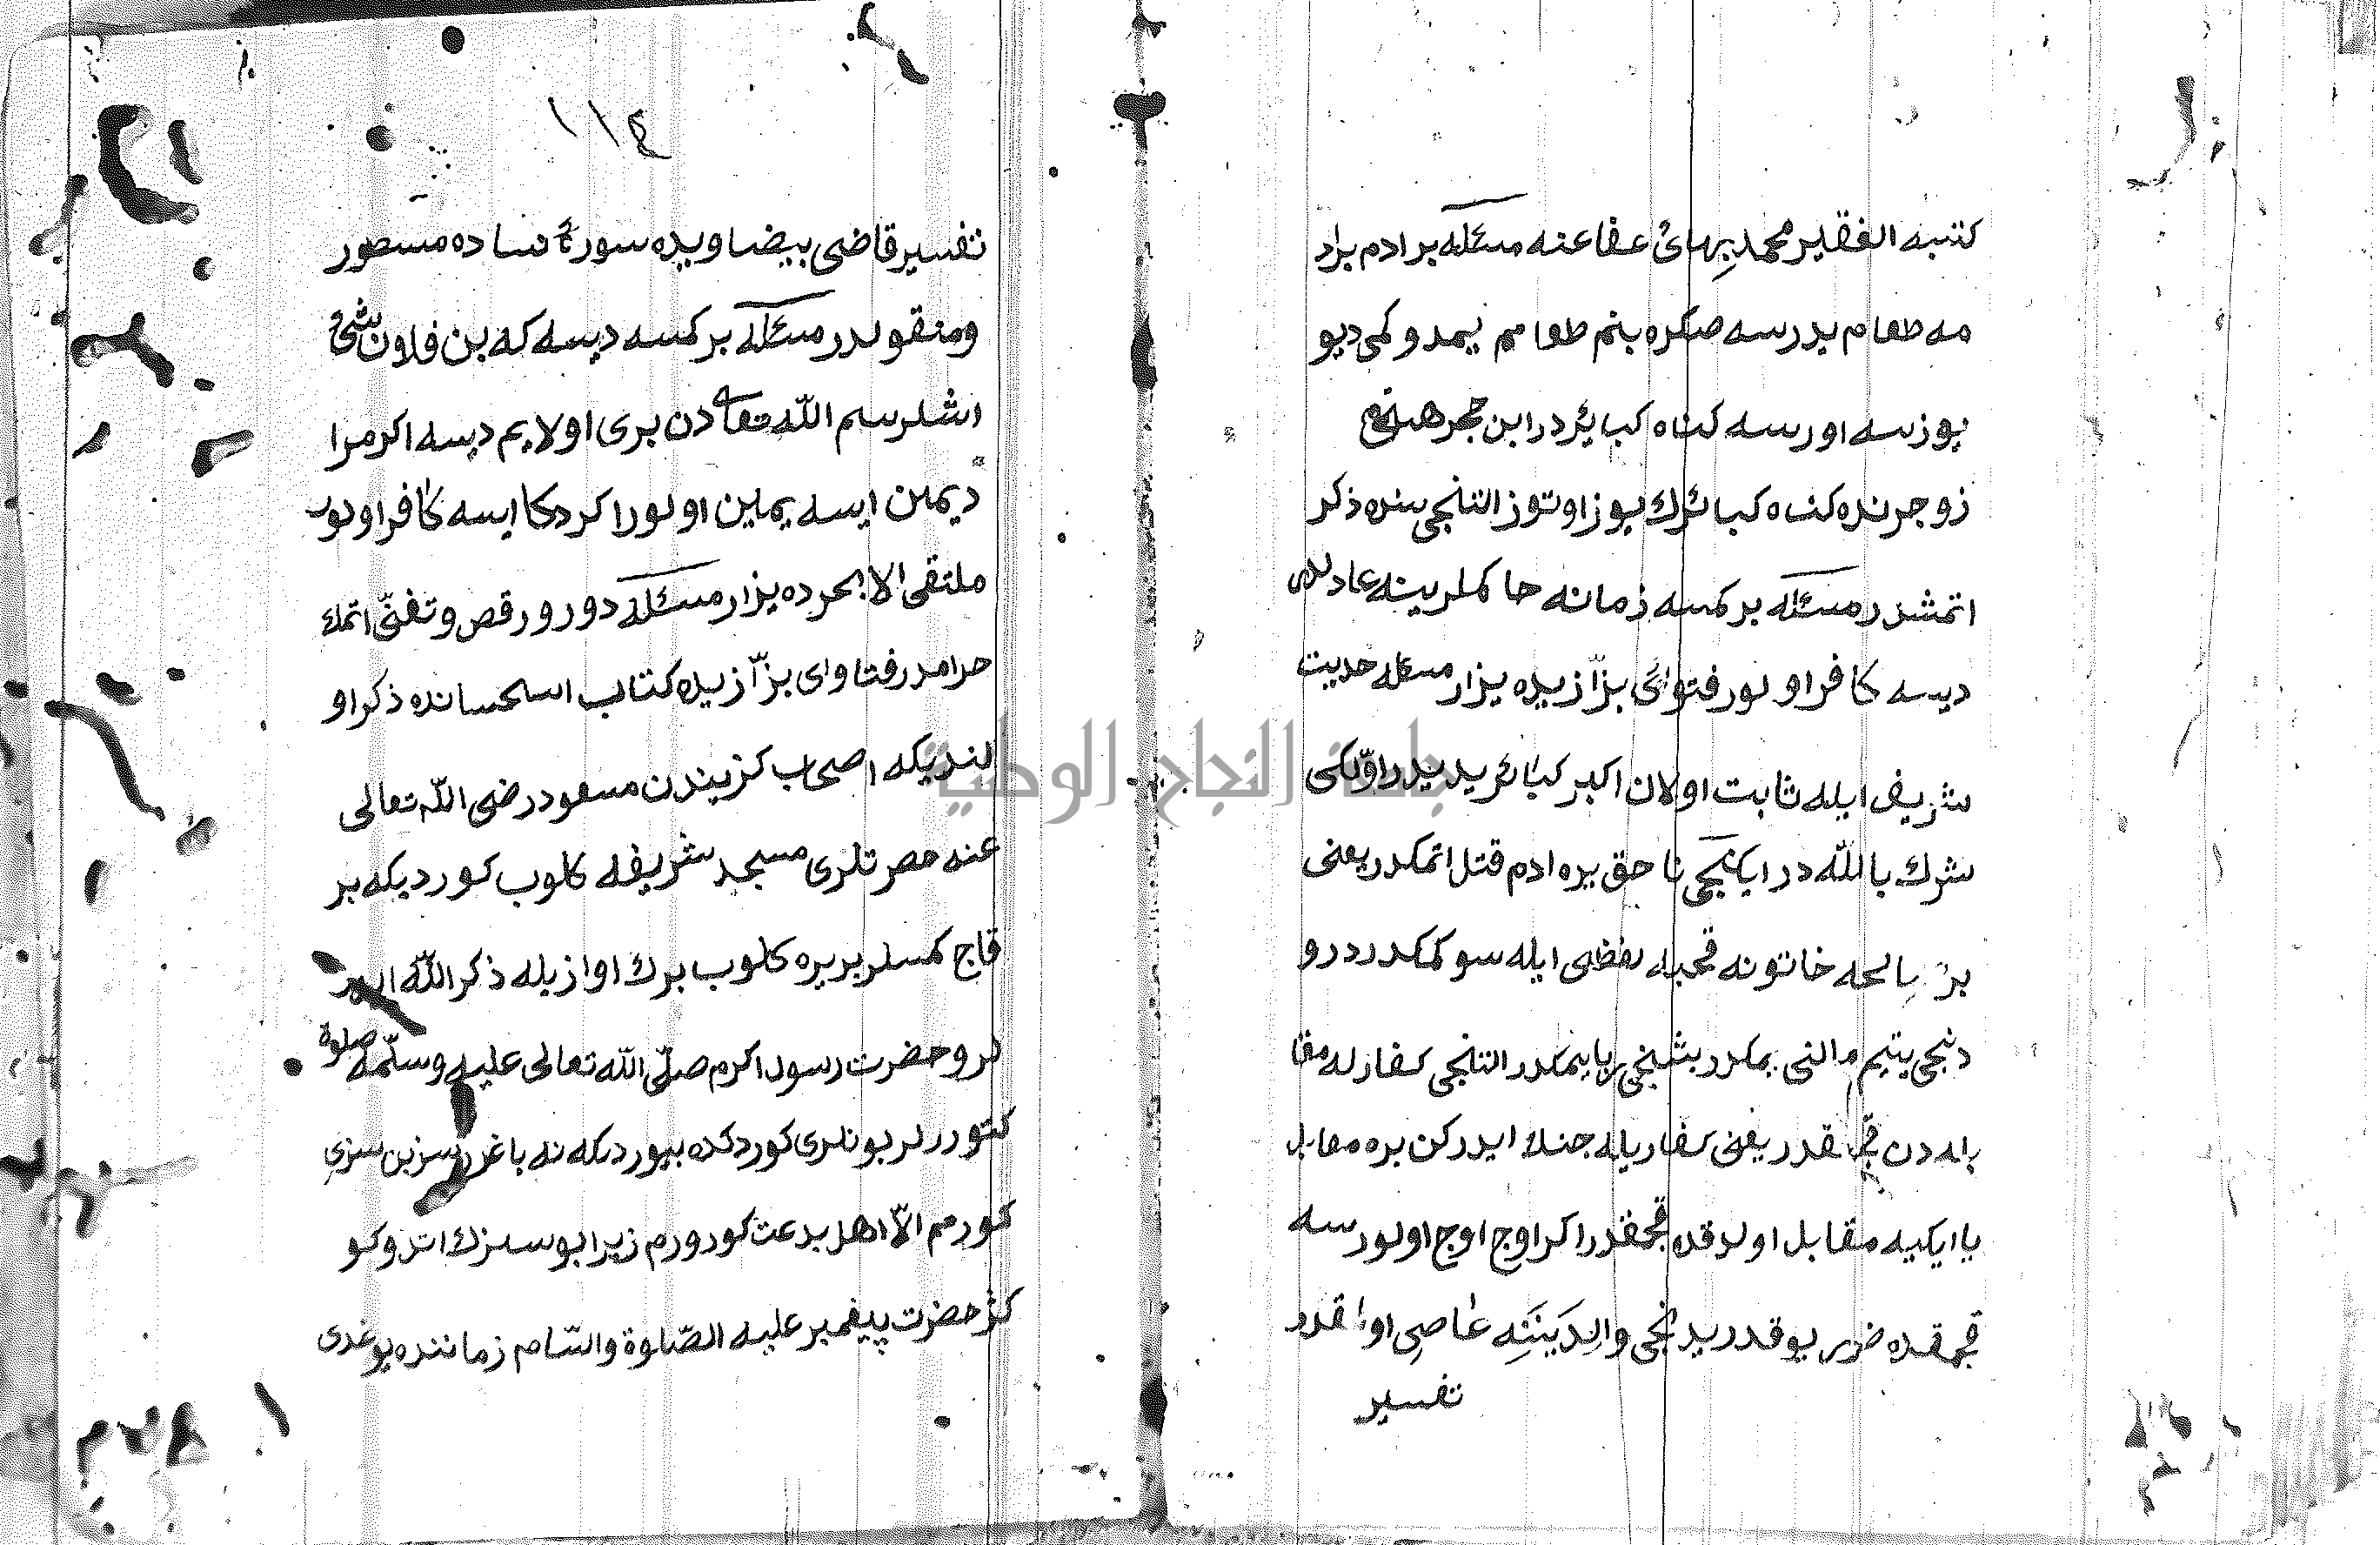 كتبه الفقير محمد بهائى عفا عنه مسئله بر ادم براد
مه طعام يدرسه صكره بنم طعامم يمدوكمى ديو
يوزسه اورسه كناه كبايردر ابن حجر هيتمى
زوجرنده كناه كبائرك يوز اوتوز التنجى سنده ذكر
اتمشدر مسئله بر كمسه زمانه حاكملرينه عادلدر
ديسه كافر اولور فتواى بزّازيده يزار مسئله حديث
شريف ايله ثابت اولان اكبر كبائر يديدر اوّلكى
شرك بالله در ايكنجى نا حق يره ادم قتل اتمكدر يعنى
بر صالحه خاتونه قحبه لفظى ايله سوكمكدر درو
دنجى يتيم مالنى يمكدر بشنجى ربا يمكدر التنجى كفارله مقا
بله دن قچمقدر يعنى كفاريله جنك ايدركن بره مقابل
يا ايكيه مقابل اولدقده قچمقدر اكر اوج اوج اولورسه
قچمقده ضرر يوقدر يدنجى والدينَنه عاصى اولمقدر
تفسير
١١٤
تفسير قاضى بيضاويده سورۀ نساده مسطور
ومنقولدر مسئله بر كمسه ديسه كه بن فلان شئى
اشلرسم الله تعالى دن برى اولايم ديسه اكر مرا
ديمين ايسه يمين اولور اكر دكل ايسه كافر اولور
ملتقى الابحرده يزار مسئله دور و رقص و تغنّى اتمك
حرامدر فتاواى بزّازيده كتاب استحسانده ذكر او
لنديكه اصحاب كزيندن مسعود رضى الله تعالى
عنه حضرتلرى مسجد شريفه كلوب كورديكه بر
قاج كمسلر بر يره كلوب برك اوازيله ذكر الله ايدر
لر و حضرت رسول اكرم صلّى الله تعالى عليه وسلّمه صلوة
كتورر لر بونلرى كوردكده بيورديكه نه ياغرسز بن سزى
كورمم الاّ اهل بدعت كورورم زيرا بو سزك اتدوكو
كز حضرت پيغمبر عليه الصّلوة والسّلام زماننده يوغدى